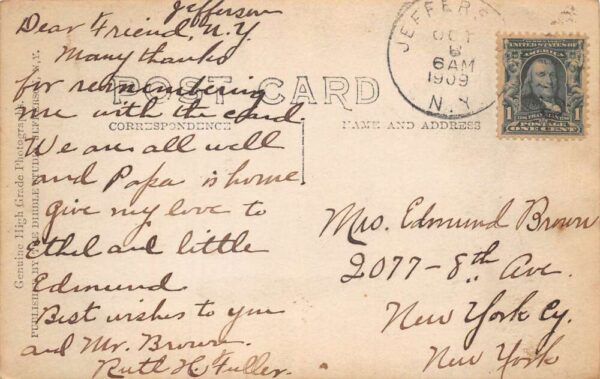 Jefferson
Dear Friend, N.Y.
Many thanks
for remembering
me with the card.
We are all well
and Papa is home
give my love to
Ethel and little
Edmund.
Best wishes to you
and Mr. Brown.
Ruth H. Fuller.
POST CARD
CORRESPONDENCE
NAME AND ADDRESS
Genuine High Grade Photograph
PUBLISHED BY THE DIBBLE STUDIO, JEFFERSON, N.Y.
JEFFERS
OCT
6
6AM
1909
N.Y.
UNITED STATES OF
1 1
POSTAGE
ONE CENT
Mrs. Edmund Brown
2077-8th Ave.
New York Cy.
New York